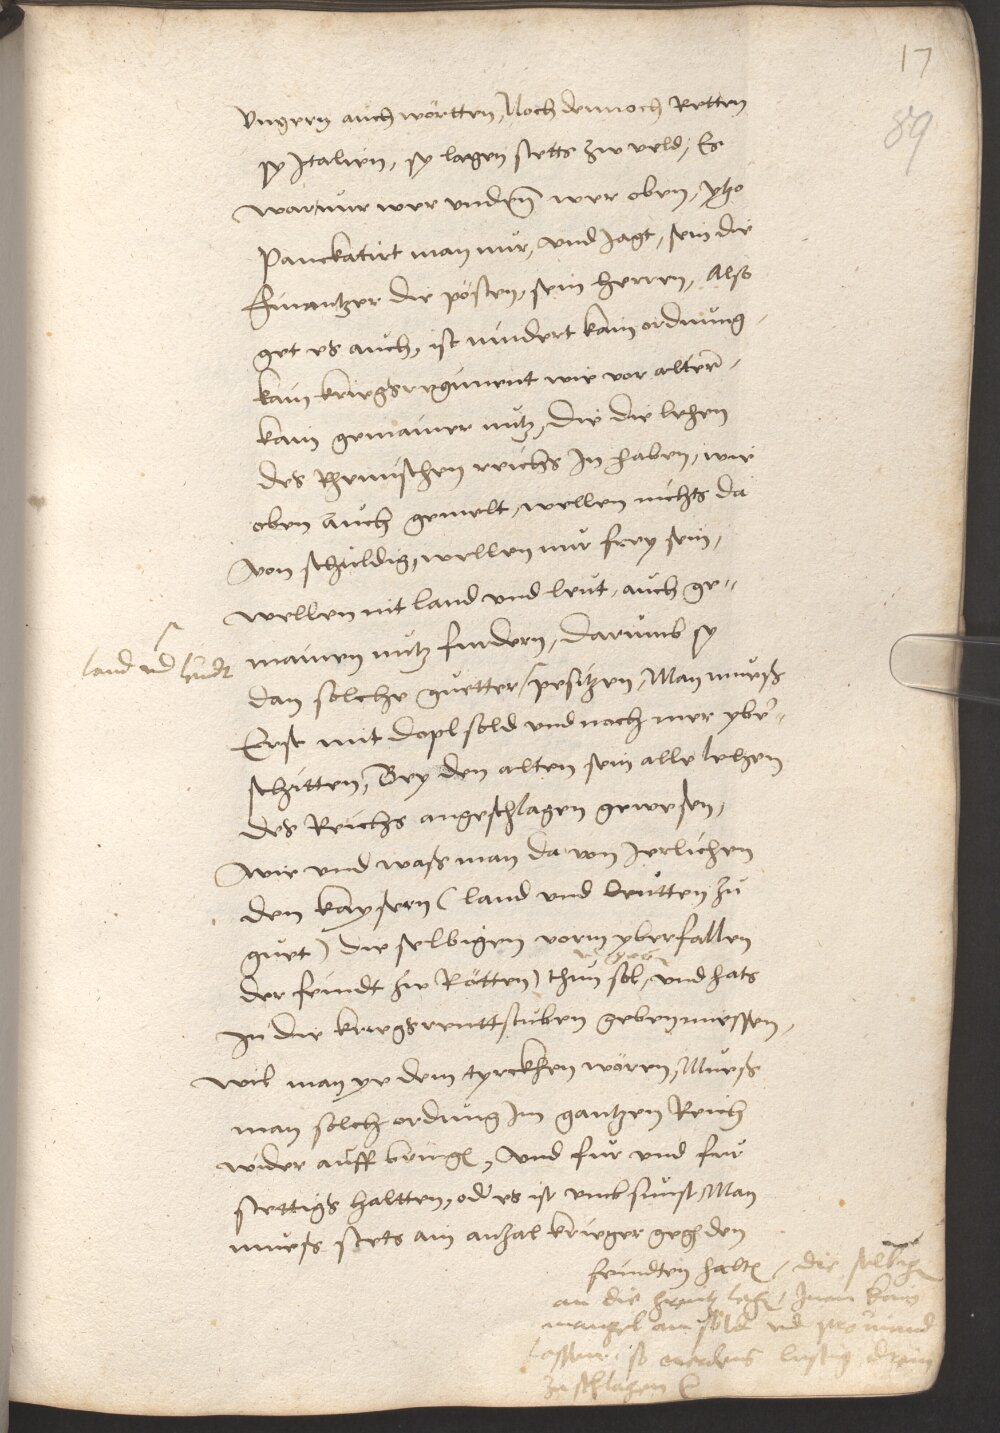 17
89
Ungern auch wörtten, Noch dennoch Retten
sy Italien, sy lagen stetts zw veld, Es
war nur wer unden wer oben, yzo
Panckatirt man nur, und Jagt, sein die
finantzer die pösten, sein herren, Also
get es auch, ist nindert kain ordnung
kain kriegsregiment wie vor alter
kain gemainer nutz, die die lehen
des Rhemischen reichs In haben, wie
oben auch gemelt, wellen nichts da
von schuldig, wellen nur frey sein,
wellen nit land und leut, auch ge=
mainen nutz furdern, darumb sy
land ud leudt
dan solche guetter pesitzen, Man mueß
Erst mit dopl sold und noch mer yber=
schitten, Bey den alten sein alle lehen
des Reichs angeschlagen gewesen,
wie und waß man da von Jerlichen
den kaysern (land und leutten zu
guet) die selbigen vorm yberfallen
der feindt zw Rötten) thun sol, und hats
in die kriegsrenttstuben geben muessen,
wil man ye dem tyrckhen wören, Mueß
man solch ordnung Im gantzen Reich
wider auff bringen, und fur und fur
stettigs haltten, oder es ist umb sunst, Man
mueß stets ain anzal krieger gegen den
feindten halten, die selbigen
an die grentz legen, Inen kain
mangel an sold ud profiand
lassen, so werdens lustig drein
zu schlagen